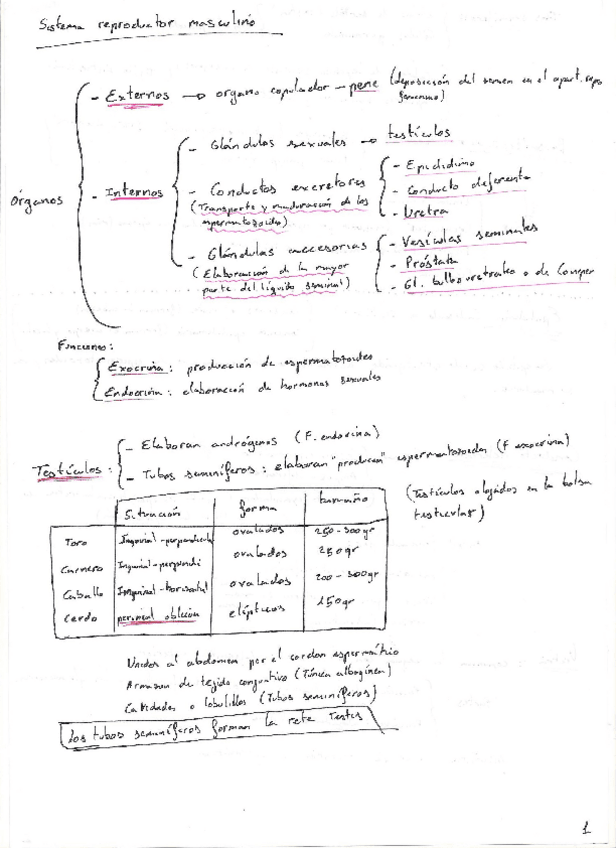 Sistema reproductor masculino
Órganos
- Externos → organo copulador - pene (deposición del semen en el apart. repo
femenino)
- Internos
- Glándulas sexuales → testículos
- Conductos excretores
(Transporte y maduración de los
espermatozoides)
- Epidídimo
- Conducto deferente
- Uretra
- Glándulas accesorias
(Elaboración de la mayor
parte del líquido seminal)
- Vesículas seminales
- Próstata
- Gl. bulbouretrales o de Cowper
Funciones:
Exocrina: producción de espermatozoides
Endocrina: elaboración de hormonas sexuales
Testículos:
- Elaboran andrógenos (F. endocrina)
- Tubos seminíferos: elaboran "producen" espermatozoides (F exocrina)
(Testículos alojados en la bolsa
testicular)
Situación forma tamaño
Toro Inguinal-perpendicular ovalados 250-300gr
Carnero Inguinal-perpendi ovalados 250gr
Caballo Inguinal-Horizontal ovalados 200-300gr
Cerdo perineal oblicua elípticos 150gr
Unidos al abdomen por el cordon espermático
Armazon de tejido conjuntivo (Túnica albugínea)
Cavidades o lobulillos (Tubos seminíferos)
Los tubos seminíferos forman la rete testis
1